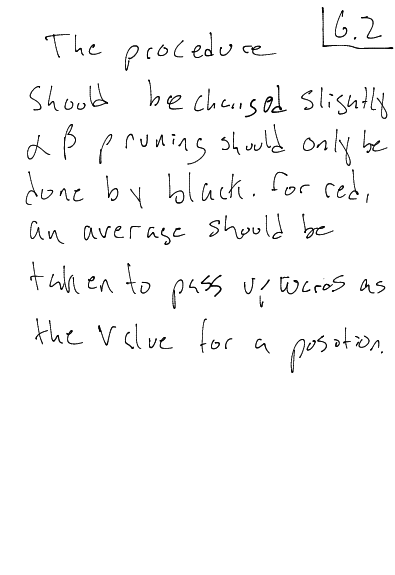 6.2
The procedure
should be changed slightly
α β pruning should only be
done by black. For red,
an average should be
taken to pass as
the value for a position.